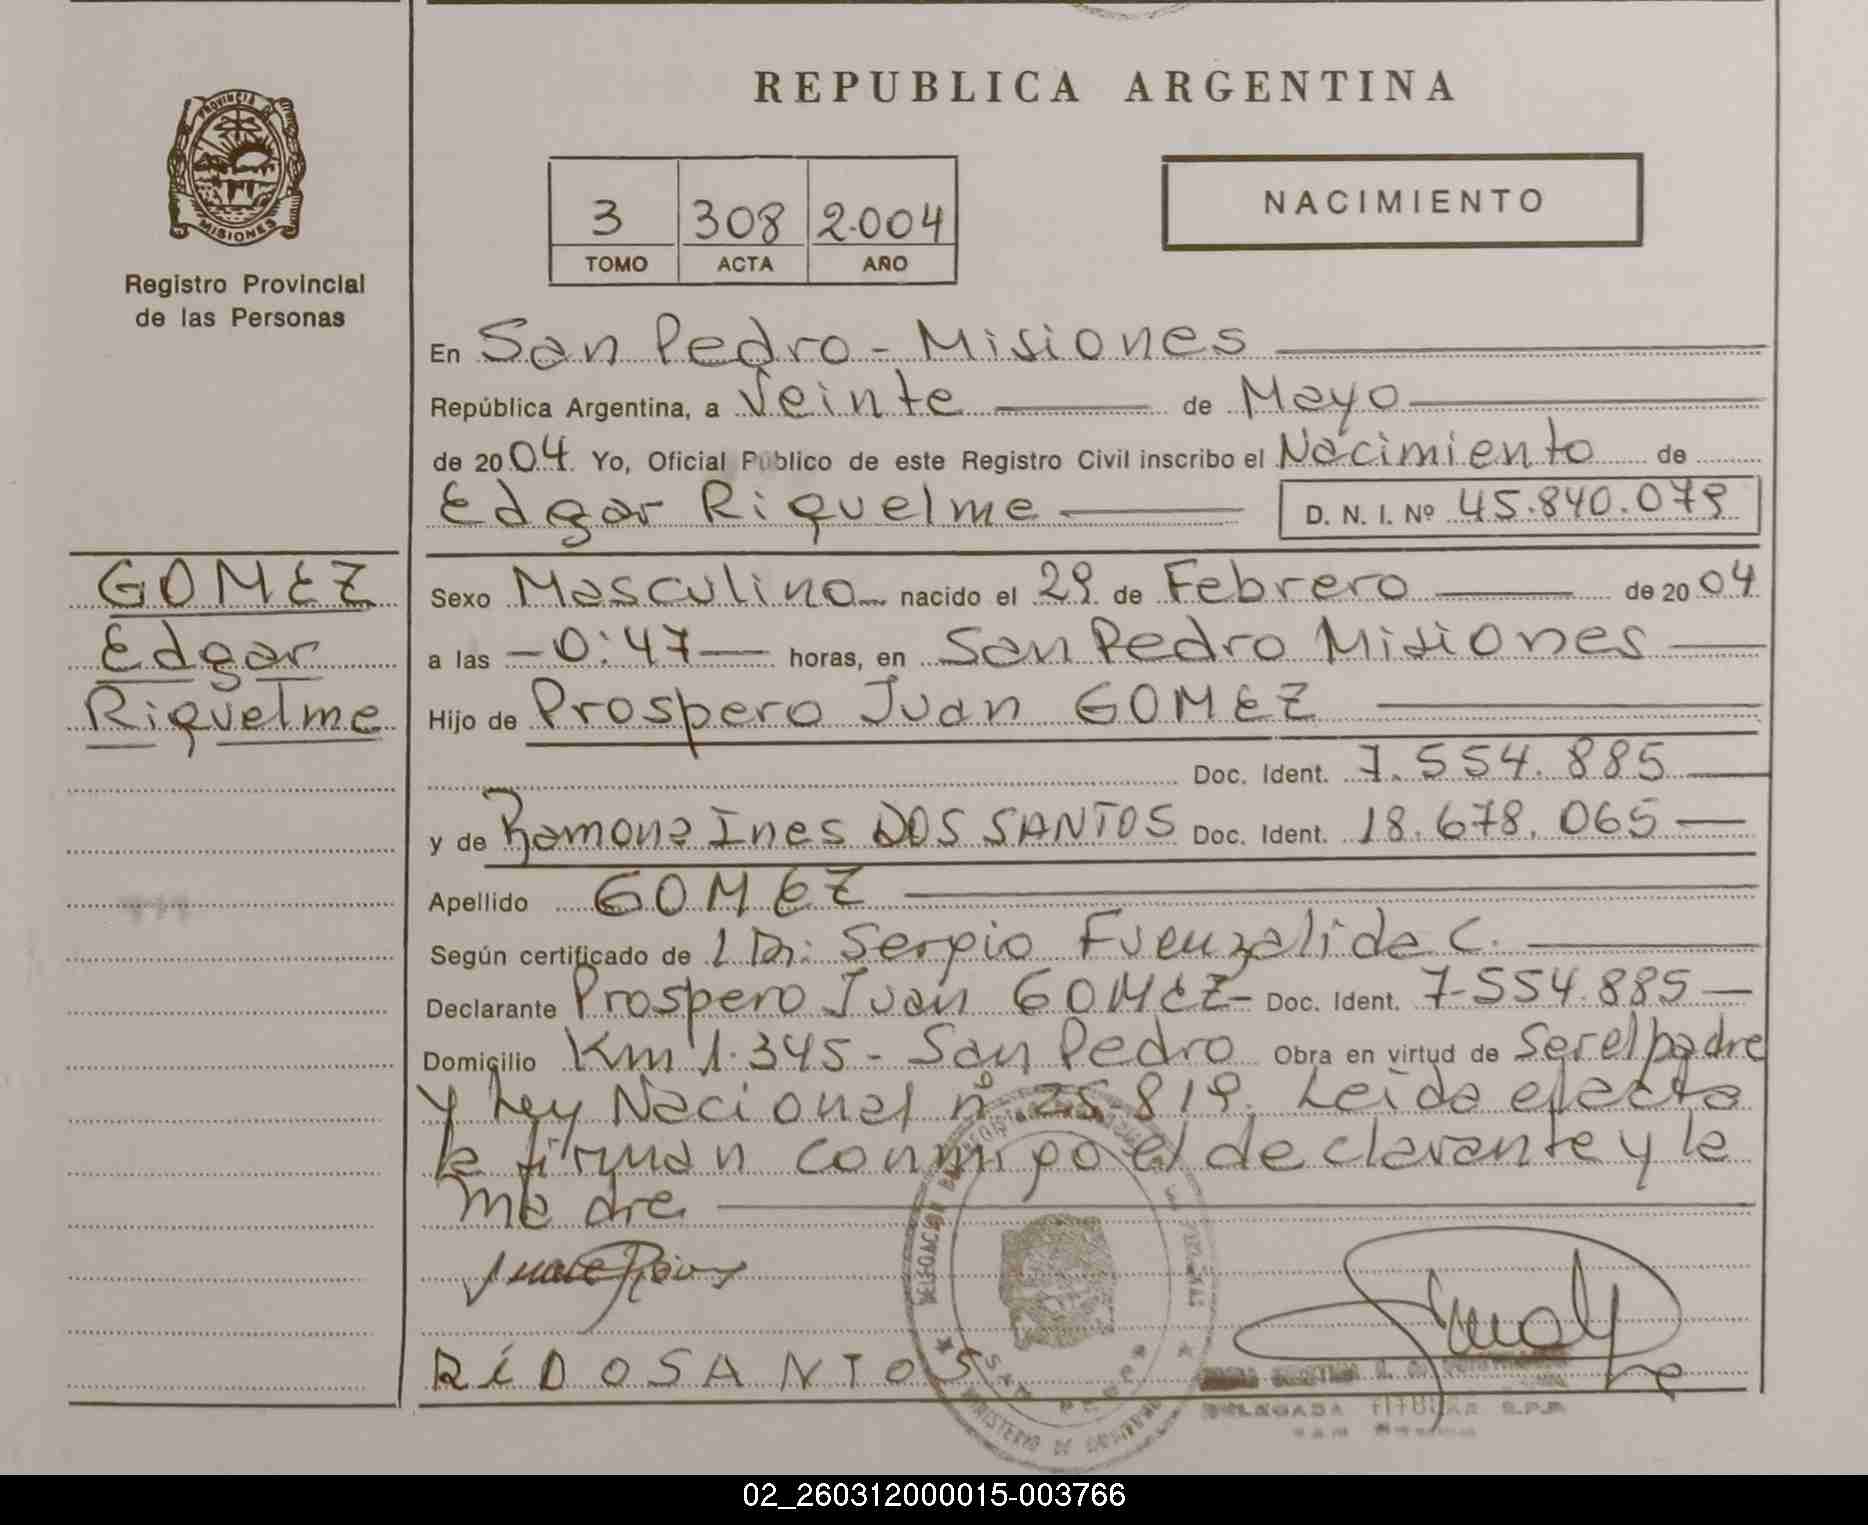 REPUBLICA ARGENTINA
PROVINCIA DE
MISIONES
Registro Provincial
de las Personas
3 308 2.004
TOMO ACTA AÑO
NACIMIENTO
En San Pedro - Misiones
República Argentina, a Veinte de Mayo
de 2004. Yo, Oficial Público de este Registro Civil inscribo el Nacimiento de
Edgar Riquelme D. N. I. Nº 45.840.079
GOMEZ
Edgar
Riquelme
Sexo Masculino nacido el 29 de Febrero de 2004
a las - 0:47 - horas, en San Pedro Misiones
Hijo de Prospero Juan GOMEZ
Doc. Ident. 7.554.885
y de Ramona Ines DOS SANTOS Doc. Ident. 18.678.065
Apellido GOMEZ
Según certificado de Dr: Sergio Fuenzalida C.
Declarante Prospero Juan GOMEZ - Doc. Ident. 7.554.885
Domicilio Km 1.345 - San Pedro Obra en virtud de Ser el padre
y Ley Nacional nº 25.819. Leída el acta
la firman conmigo el declarante y la
madre
RIDOSANTOS
DELEGACION
SAN PEDRO
MINISTERIO DE
DELEGADA TITULAR R.P.P.
02_260312000015-003766